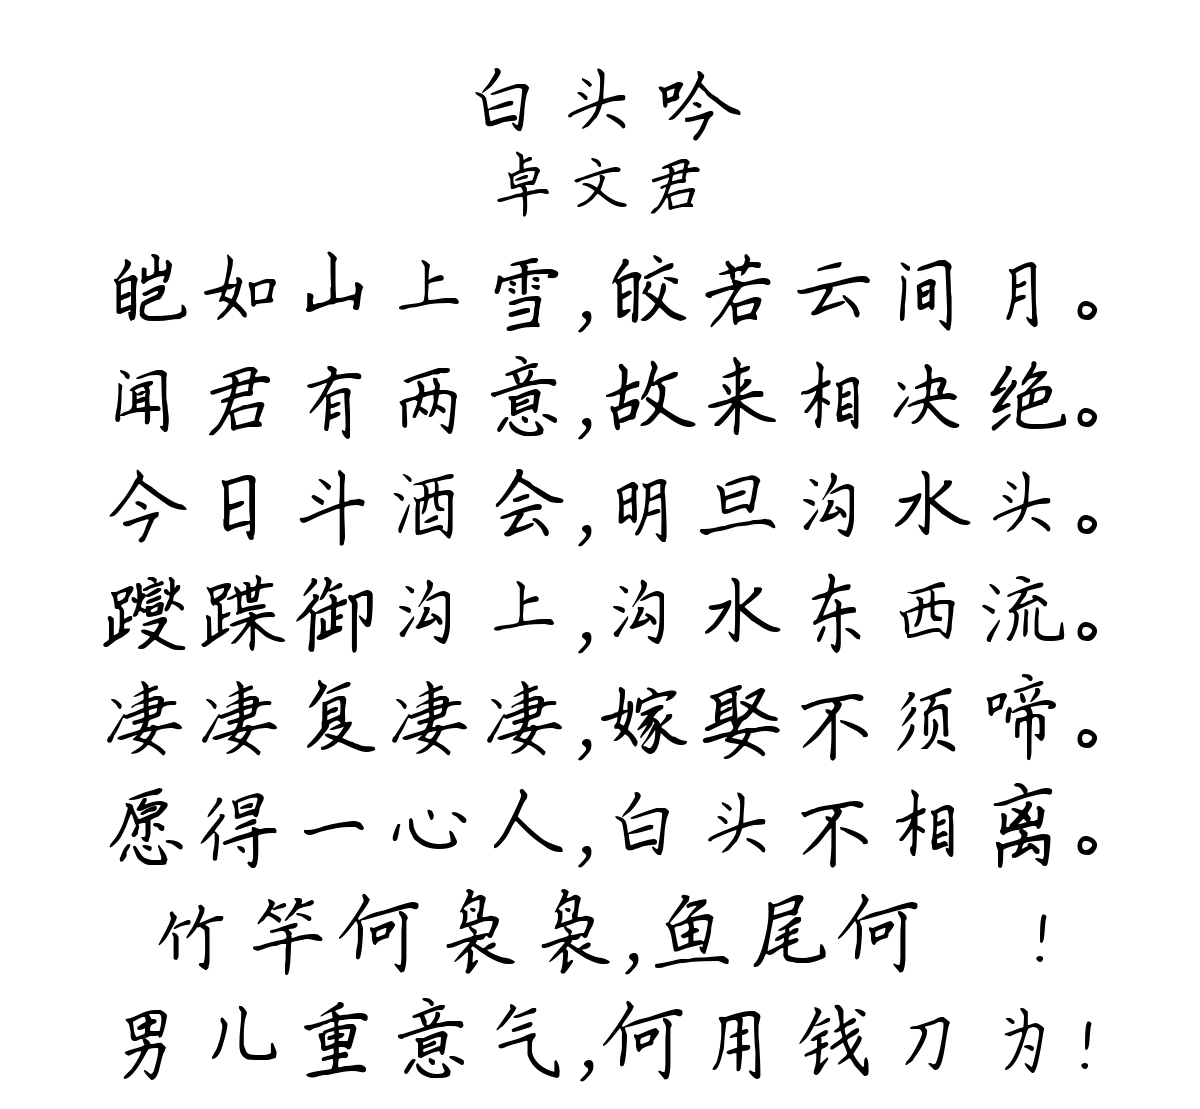 白头吟
卓文君
皑如山上雪,皎若云间月。
闻君有两意,故来相决绝。
今日斗酒会,明旦沟水头。
躞蹀御沟上,沟水东西流。
凄凄复凄凄,嫁娶不须啼。
愿得一心人,白头不相离。
竹竿何袅袅,鱼尾何 !
男儿重意气,何用钱刀为!